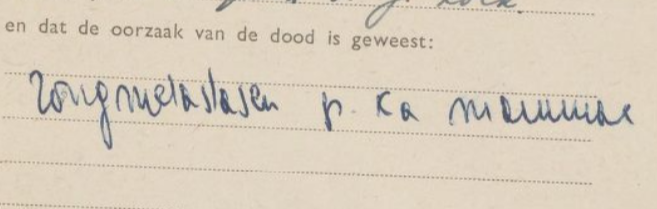 en dat de oorzaak van de dood is geweest:
longmetastasen p. Ka mammae